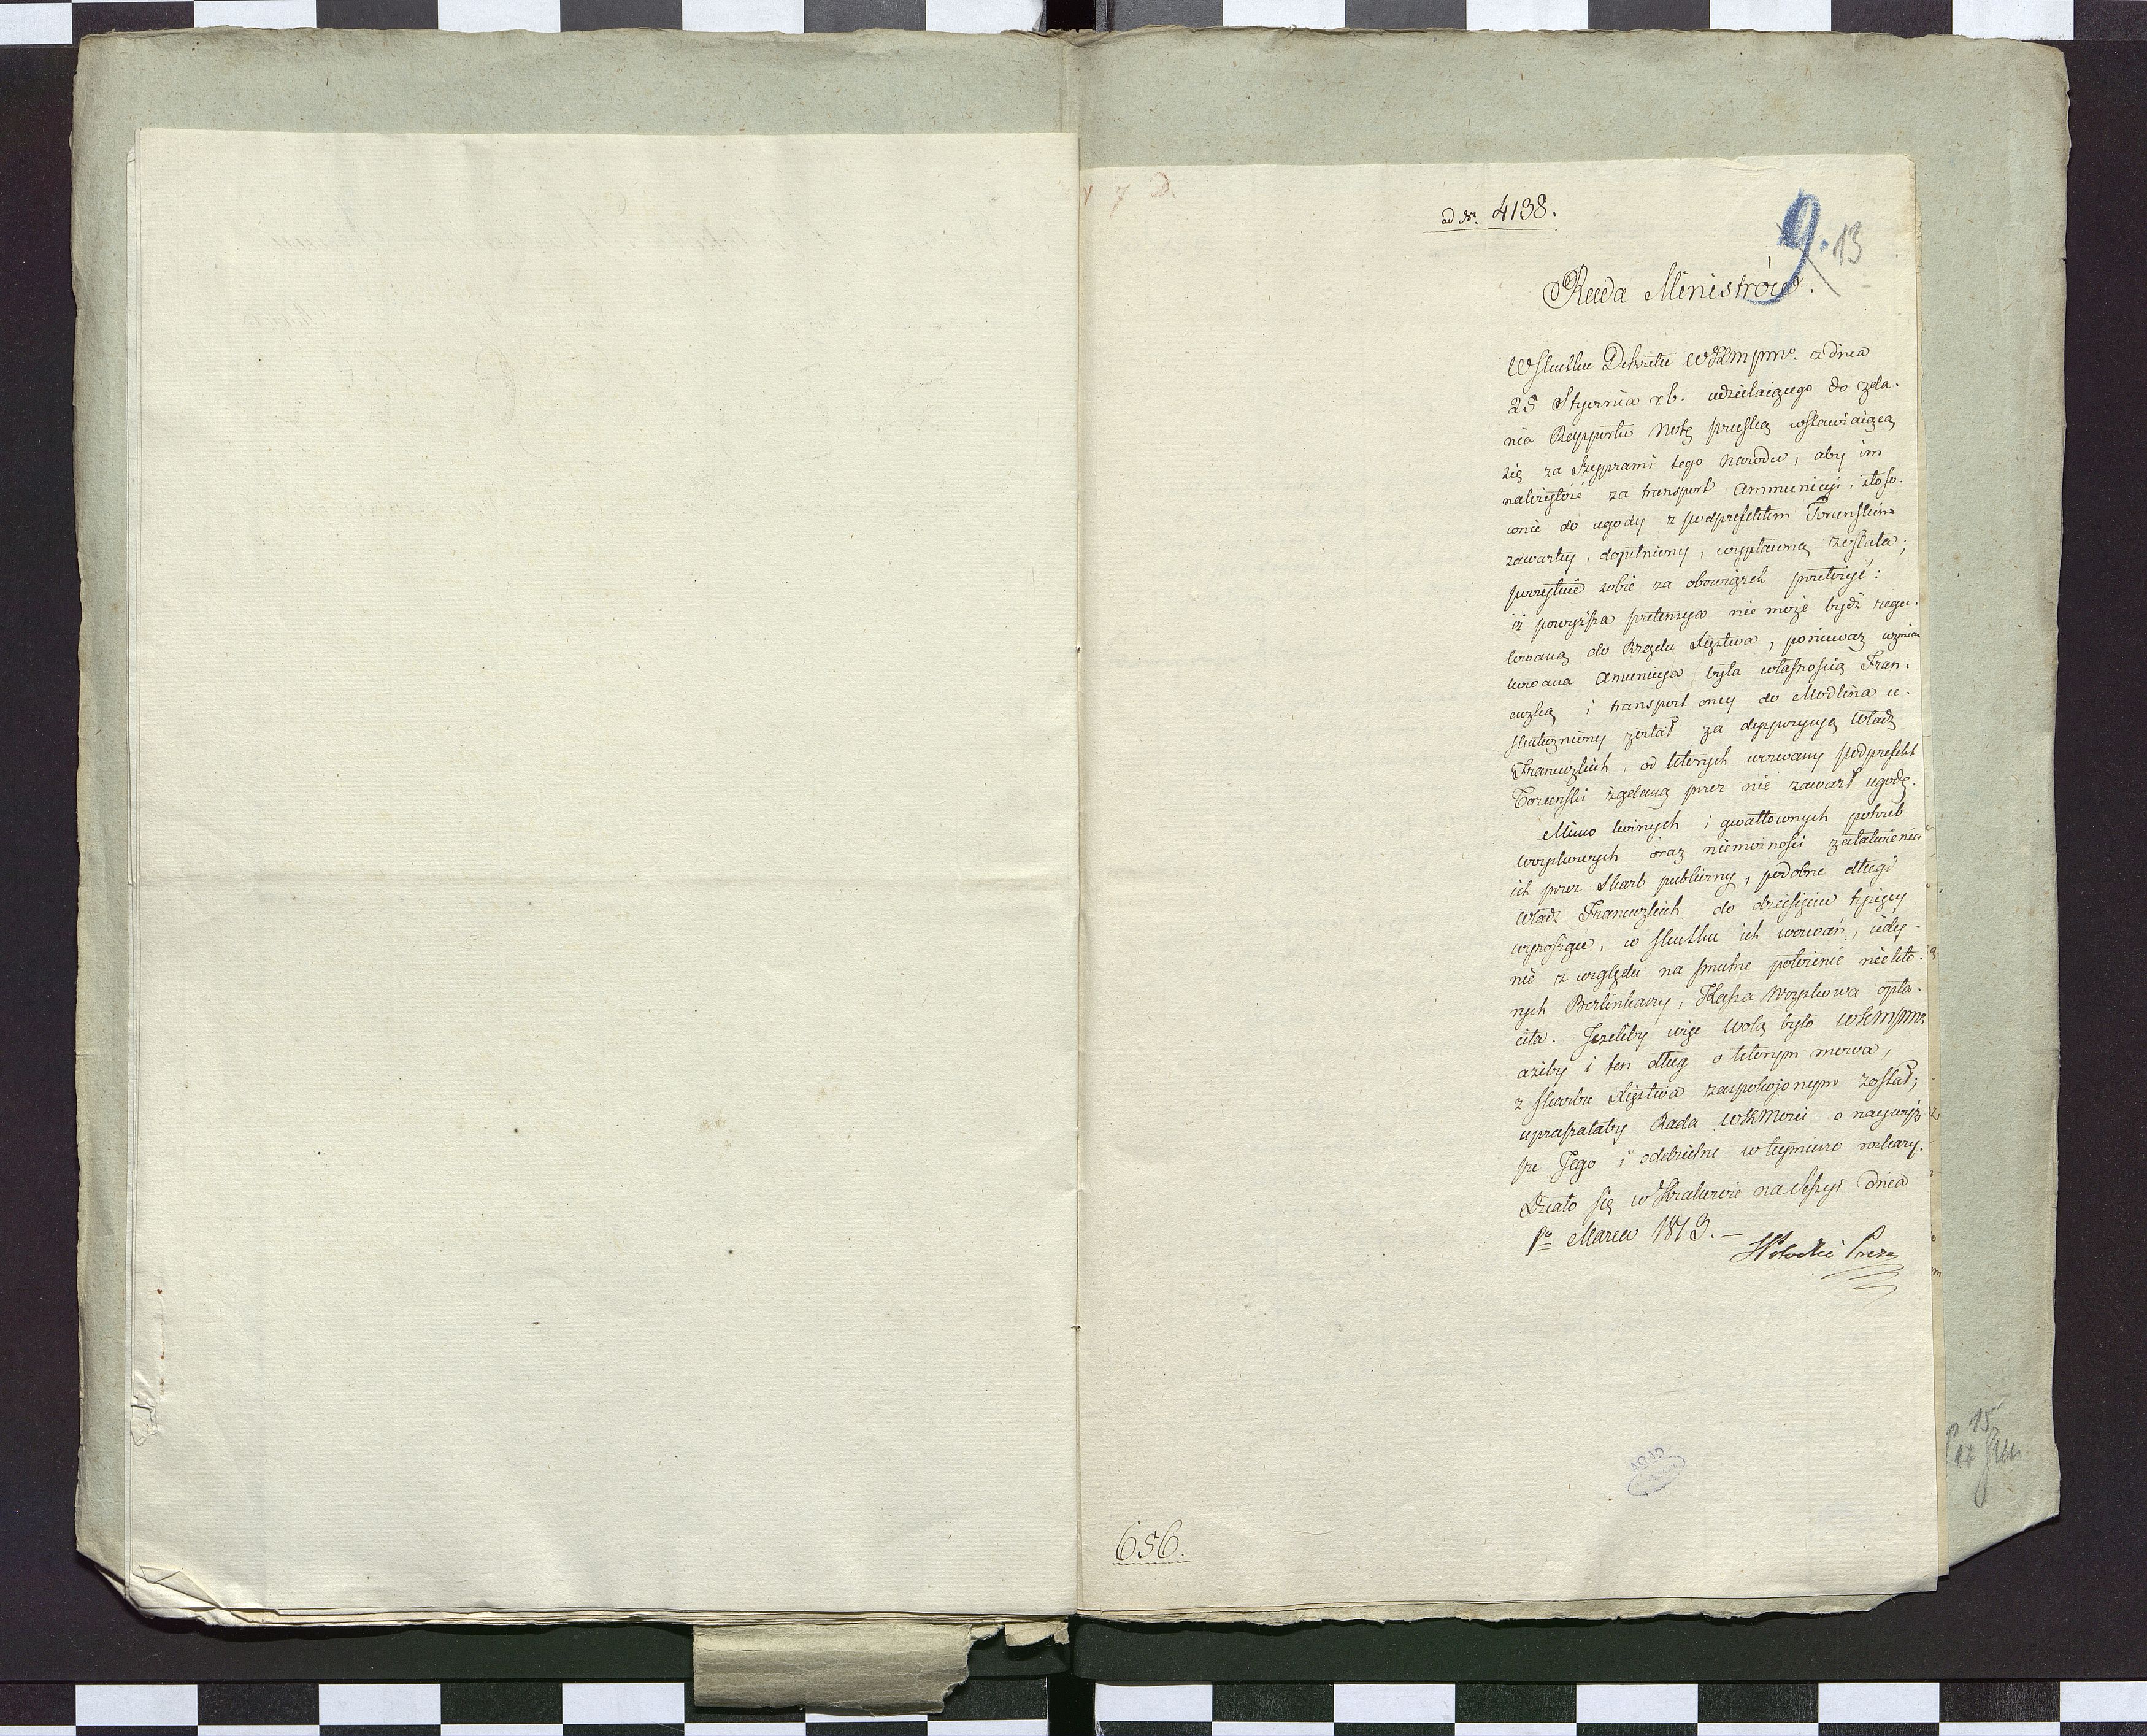 ad Nr. 4138.
9. 13
Rada Ministrów.
W skutku Dekretu WKMPmo. z dnia
25 Stycznia r.b. udzielaiącego do zda-
nia Rapportu Notę pruską wstawiaiącą
się za Szyprami tego Narodu, aby im
należytość za transport Ammunicyi, stoso-
wnie do ugody z podprefektem Toruńskim
zawartey, dopełniony, wypłaconą została;
poczytuie sobie za obowiązek przełożyć:
iż powyższa pretensya nie może bydź regu-
lowaną do Rządu Xięztwa, ponieważ wzmian-
kowana Amunicya była własnością Fran-
cuzką i transport oney do Modlina u-
skuteczniony został za dyspozycyą Władz
Francuzkich, od których wezwany podprefekt
Toruński żądaną przez nie zawarł ugodę.
Mimo licznych i gwałtownych potrzeb
woyskowych oraz niemożności załatwienia
ich przez Skarb publiczny, podobne długi
Władz Francuzkich do dziesięciu tysięcy
wynoszące, w skutku ich wezwań, iedy-
nie z względu na smutne położenie niektó-
rych Berlinkarzy, Kassa Woyskowa opła-
ciła. Jeżeliby więc wolą było WKMPmo
ażeby i ten dług o którym mowa,
z skarbu Xięztwa zaspokojonym został;
upraszałaby Rada WKMości o naywyż-
sze Jego i oddzielne w tey mierze rozkazy.
Działo się w Krakowie na Sessyi dnia
1o Marca 1813. —
Potocki Prezes
656.
AGAD
15